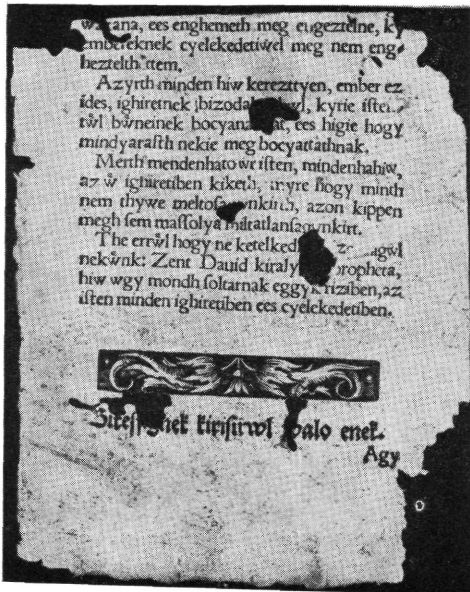 ees enghemeth meg eugeztelne, ky
embereknek cyelekedetiwel meg nem eng
hezteltһettem.
Azyrth minden hiw kerezttyen, ember ez
ides, ighiretnek kyrie isten
twl bẃneinek ees higie hogy
mindyarasth nekie meg bocyattathnak.
Merth mendenhato wr isten, mindenhahiw,
az ẃ ighiretiben kiketh, myre hogy minth
nem thywe azon kippen
megh sem massolya
The errẃl hogy ne
nekẃnk: Zent Dauid kiraly propheta,
hiw wgy mondh soltarnak eggyk riziben, az
isten minden ighiretiben ees cyelekedetiben.
kirisirwl walo enek.
Agy